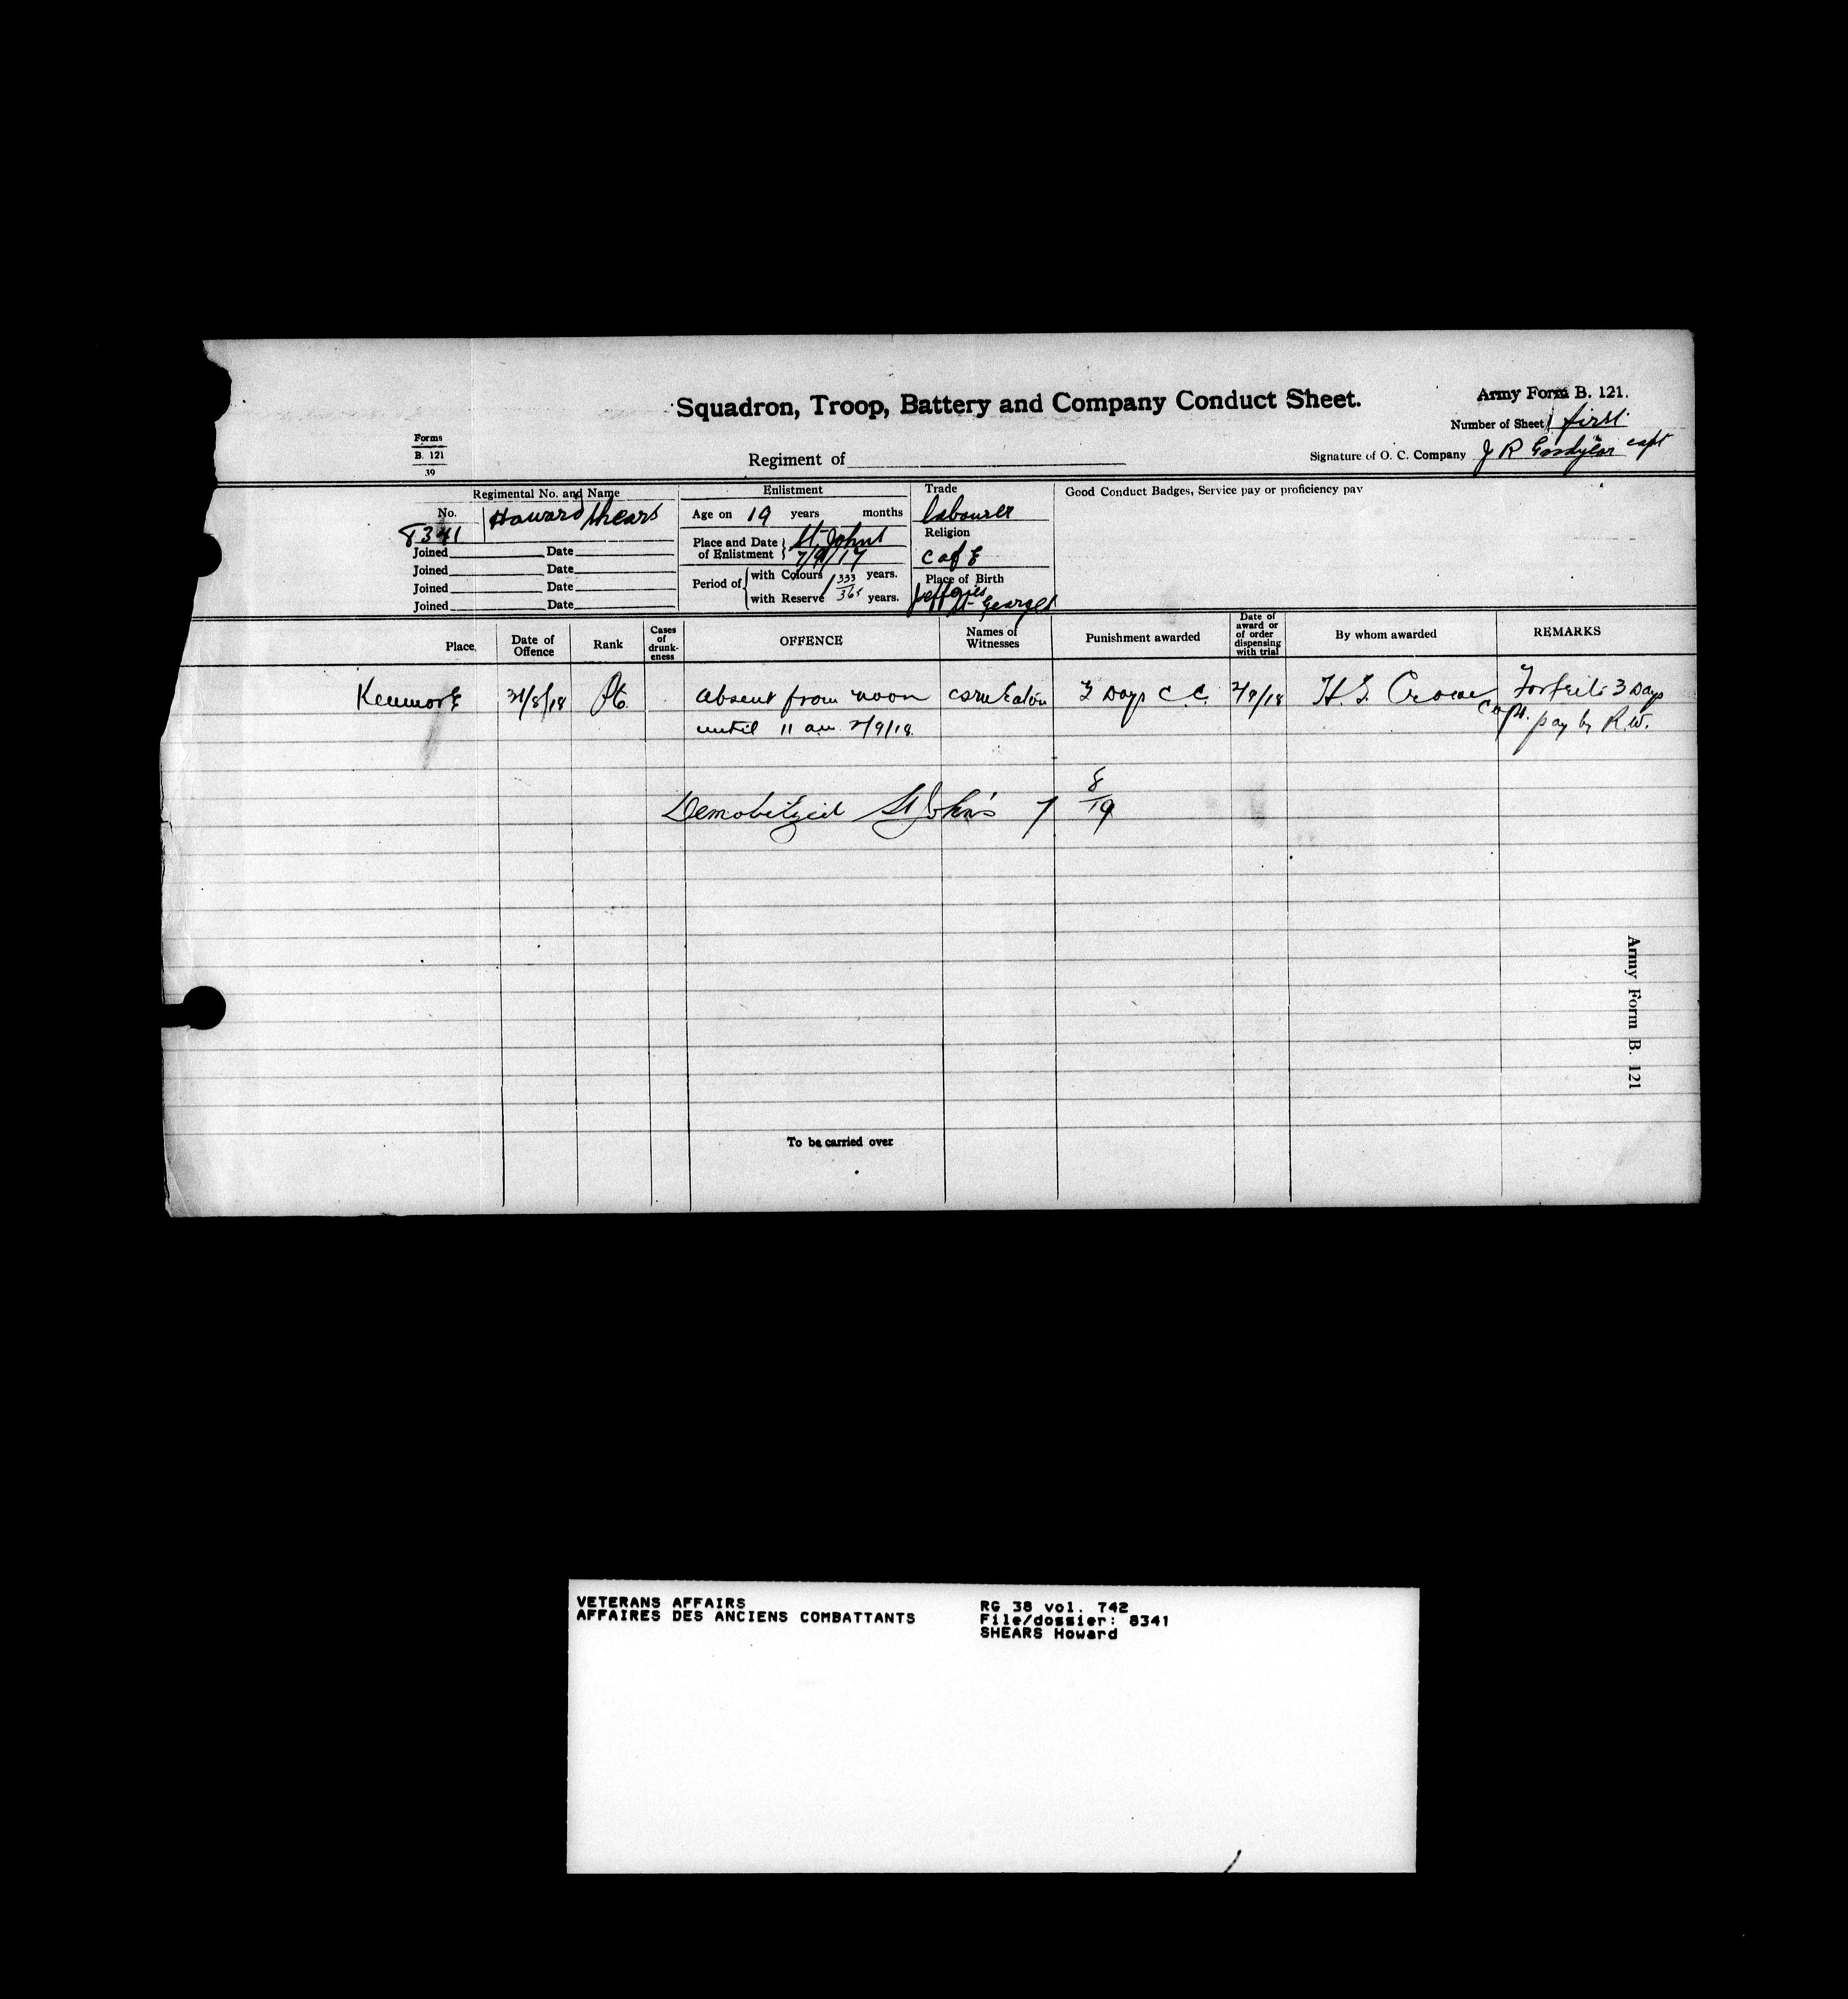 Squadron, Troop, Battery and Company Conduct Sheet.
Army Form B. 121.
Number of Sheet first
Forms
B. 121
39
Regiment of
Signature of O. C. Company J R capt
Regimental No. and Name
No.
8341
Howard Shears
Joined Date
Joined Date
Joined Date
Joined Date
Enlistment
Age on 19 years months
Place and Date of Enlistment St Johns
7/9/17
Period of with Colours 1 333/365 years.
with Reserve years.
Trade
labourer
Religion
C of E
Place of Birth
Jeffries
St Georges
Good Conduct Badges, Service pay or proficiency pay
Place Date of Offence Rank Cases of drunk-eness OFFENCE Names of Witnesses Punishment awarded Date of award or of order dispensing with trial By whom awarded REMARKS
Kenmore 31/8/18 Pte absent from noon CSM Eaton 3 Days C.C. 2/9/18 H. S. Crowe Capt. Forfeits 3 Days
until 11 am 2/9/18 pay by R.W.
Demobilized St John's 7 8/19
To be carried over
Army Form B. 121
VETERANS AFFAIRS
AFFAIRES DES ANCIENS COMBATTANTS
RG 38 vol. 742
File/dossier: 8341
SHEARS Howard